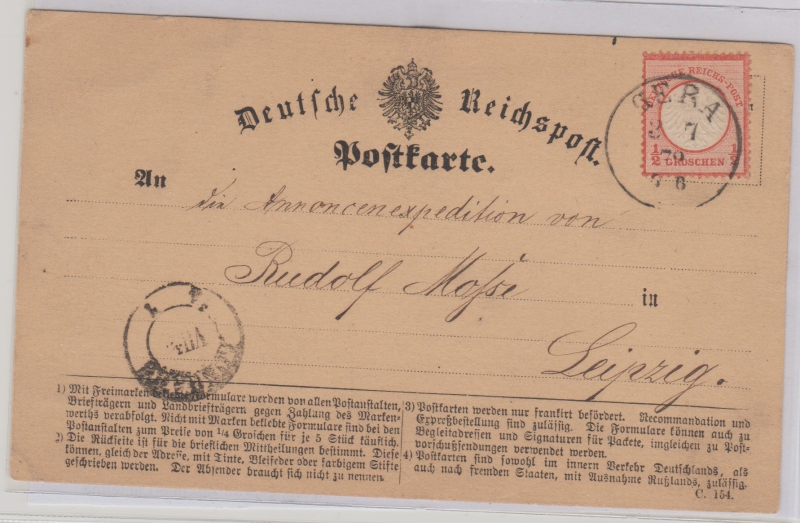 Deutsche Reichspost.
Postkarte.
REICHS-POST
1/2 GROSCHEN 1/2
GERA
7
An
die Annoncenexpedition von
Rudolf Mosse
in
Leipzig.
1) Mit Freimarken beklebte Formulare werden von allen Postanstalten,
Briefträgern und Landbriefträgern gegen Zahlung des Marken-
werths verabfolgt. Nicht mit Marken beklebte Formulare sind bei den
Postanstalten zum Preise von 1/4 Groschen für je 5 Stück käuflich.
2) Die Rückseite ist für die brieflichen Mittheilungen bestimmt. Diese
können, gleich der Adresse, mit Tinte, Bleifeder oder farbigem Stifte
geschrieben werden. Der Absender braucht sich nicht zu nennen.
3) Postkarten werden nur frankirt befördert. Recommandation und
Expreßbestellung sind zulässig. Die Formulare können auch zu
Begleitadressen und Signaturen für Packete, imgleichen zu Post-
vorschußsendungen verwendet werden.
4) Postkarten sind sowohl im innern Verkehr Deutschlands, als
auch nach fremden Staaten, mit Ausnahme Rußlands, zulässig.
C. 154.